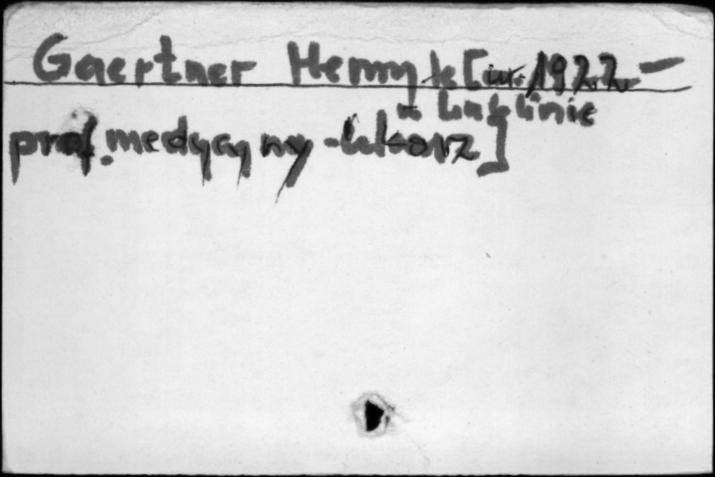 Gaertner Henryk [ur. 1922 -
w Lublinie
prof. medycyny - lekarz]